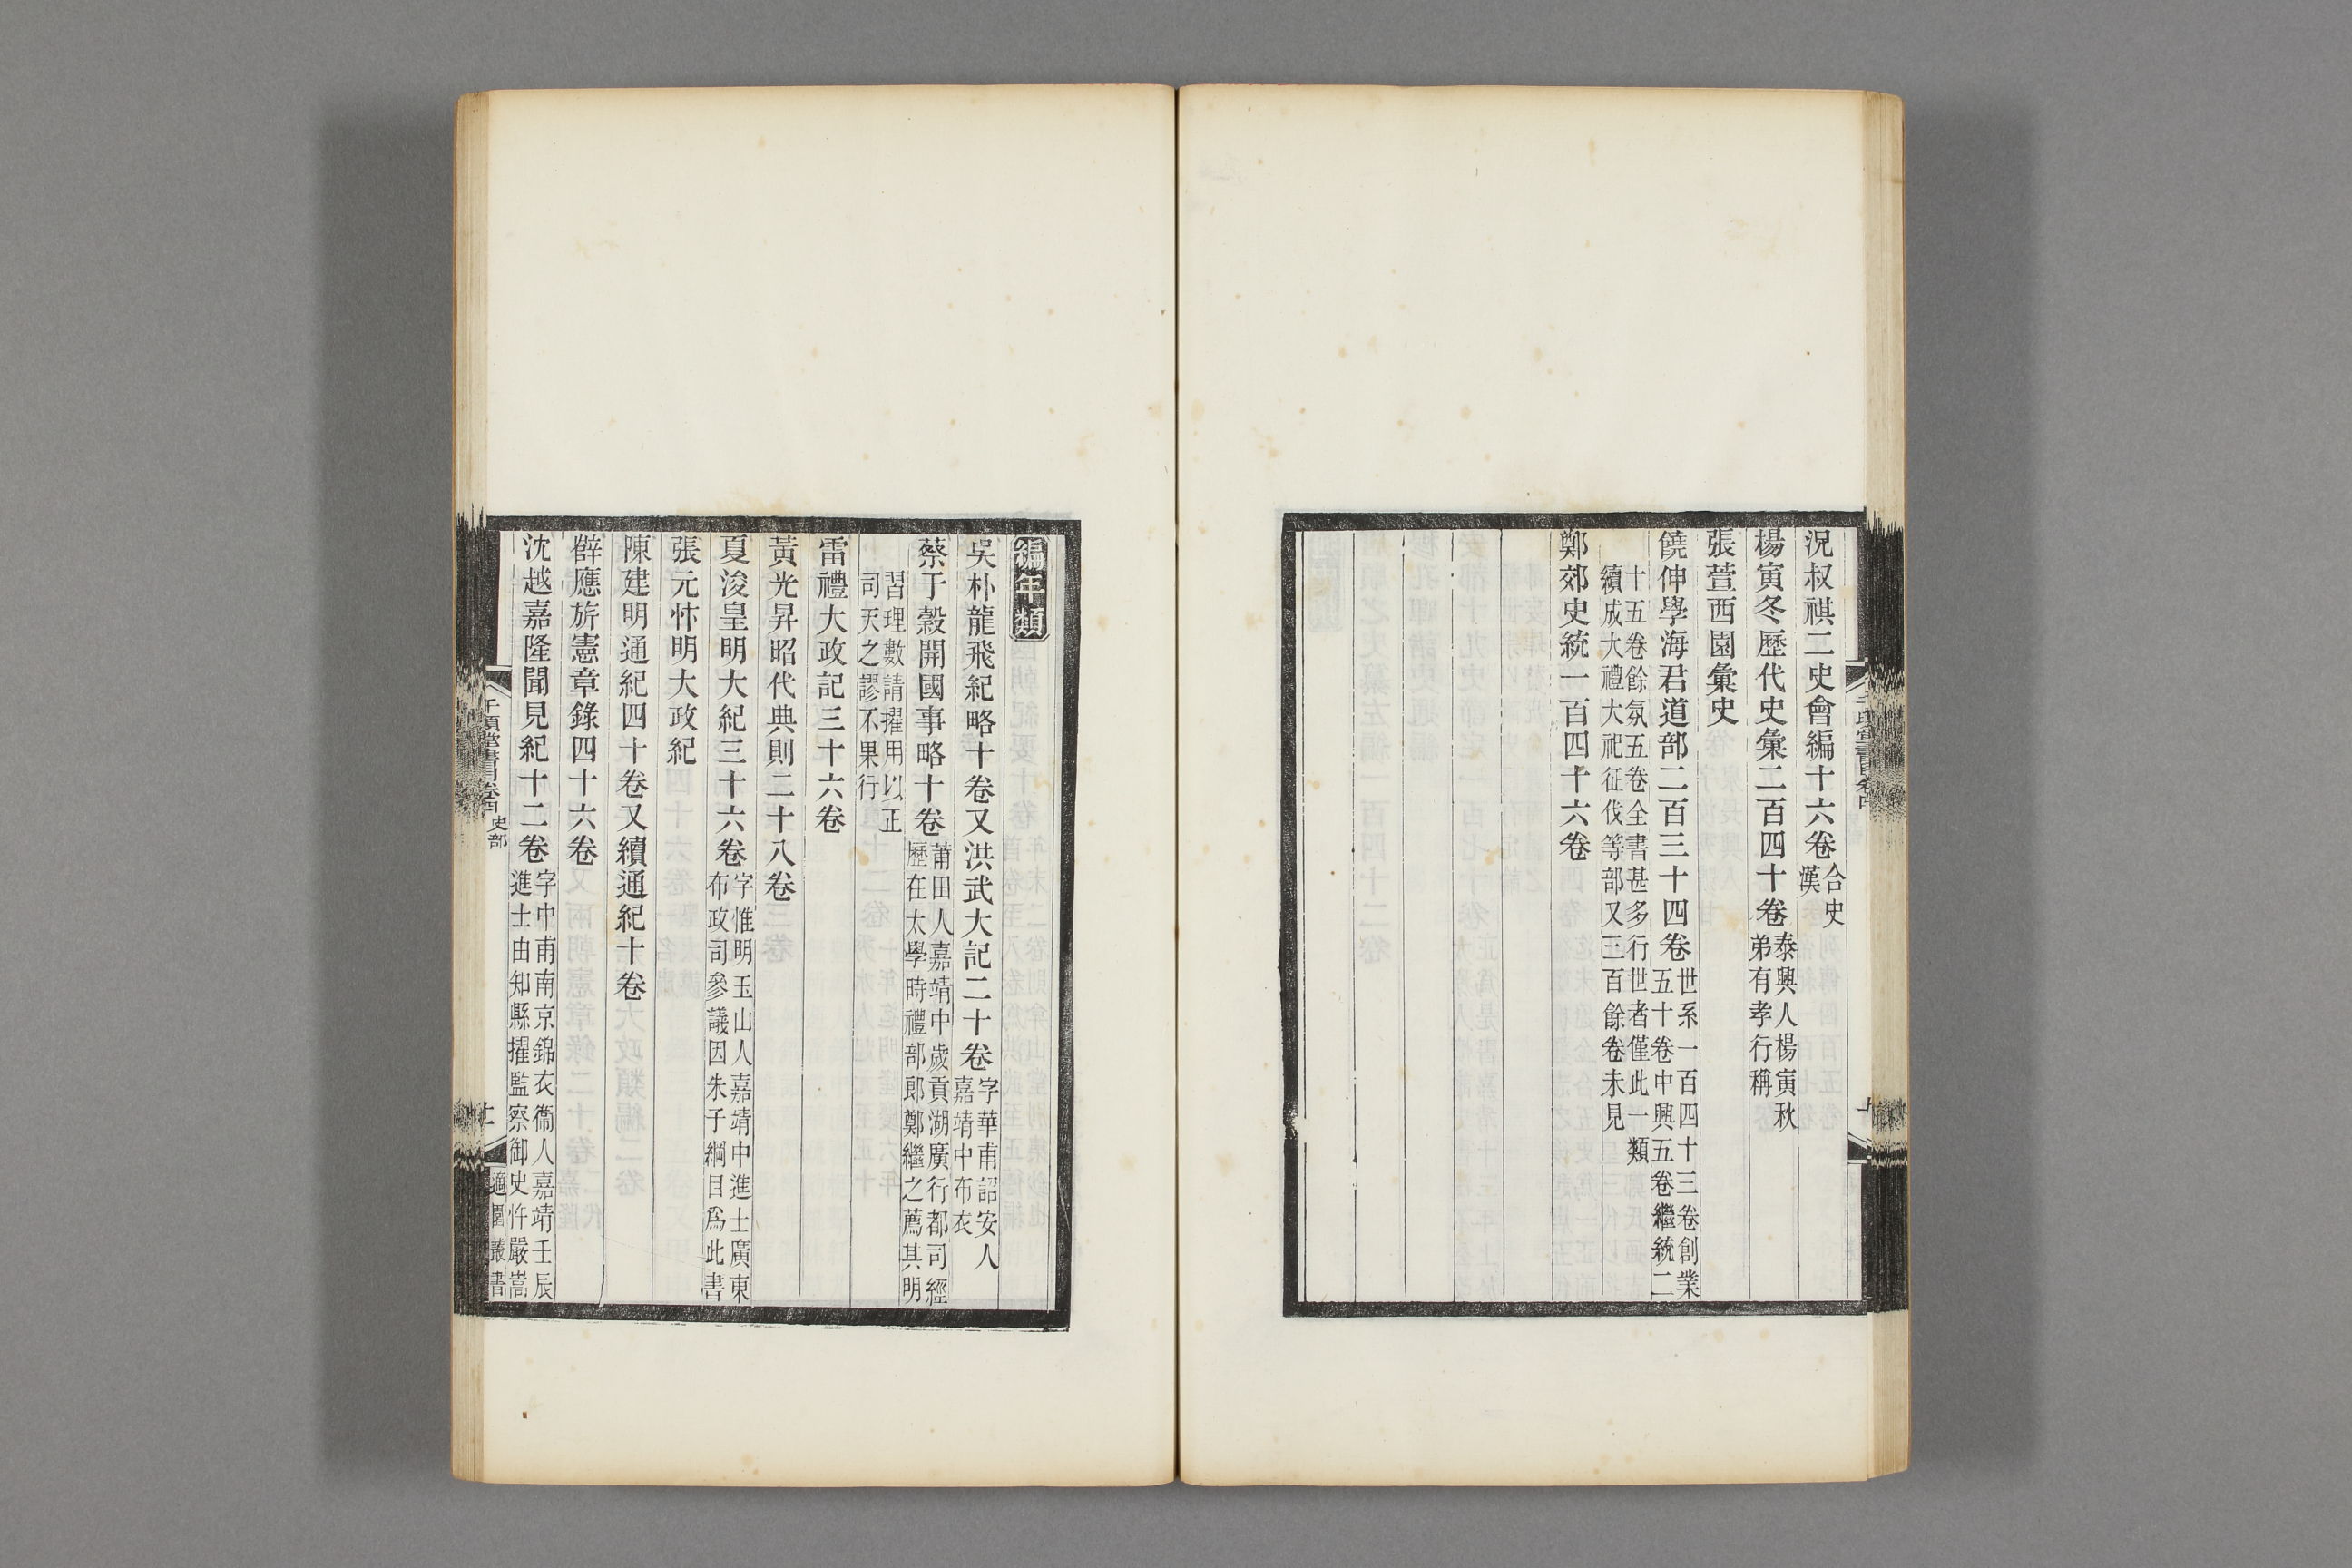 況叔祺二史會編十六卷合史
漢
楊寅冬歷代史彙二百四十卷泰興人楊寅秋
弟有孝行稱
張萱西園彙史
饒伸學海君道部二百三十四卷世系一百四十三卷創業
五十卷中興五卷繼統二
十五卷餘氛五卷全書甚多行世者僅此一類
續成大禮大祀征伐等部又三百餘卷未見
鄭郊史統一百四十六卷
編年類
吳朴龍飛紀略十卷又洪武大記二十卷字華甫詔安人
嘉靖中布衣
蔡于穀開國事略十卷莆田人嘉靖中歲貢湖廣行都司經
歷在太學時禮部郎鄭繼之薦其明
習理數請擢用以正
司天之謬不果行
雷禮大政記三十六卷
黃光昇昭代典則二十八卷
夏浚皇明大紀三十六卷字惟明玉山人嘉靖中進士廣東
布政司參議因朱子綱目爲此書
張元忭明大政紀
陳建明通紀四十卷又續通紀十卷
薛應旂憲章錄四十六卷
沈越嘉隆聞見紀十二卷字中甫南京錦衣衞人嘉靖壬辰
進士由知縣擢監察御史忤嚴嵩
千頃堂書目卷四 史部
十一
適園叢書